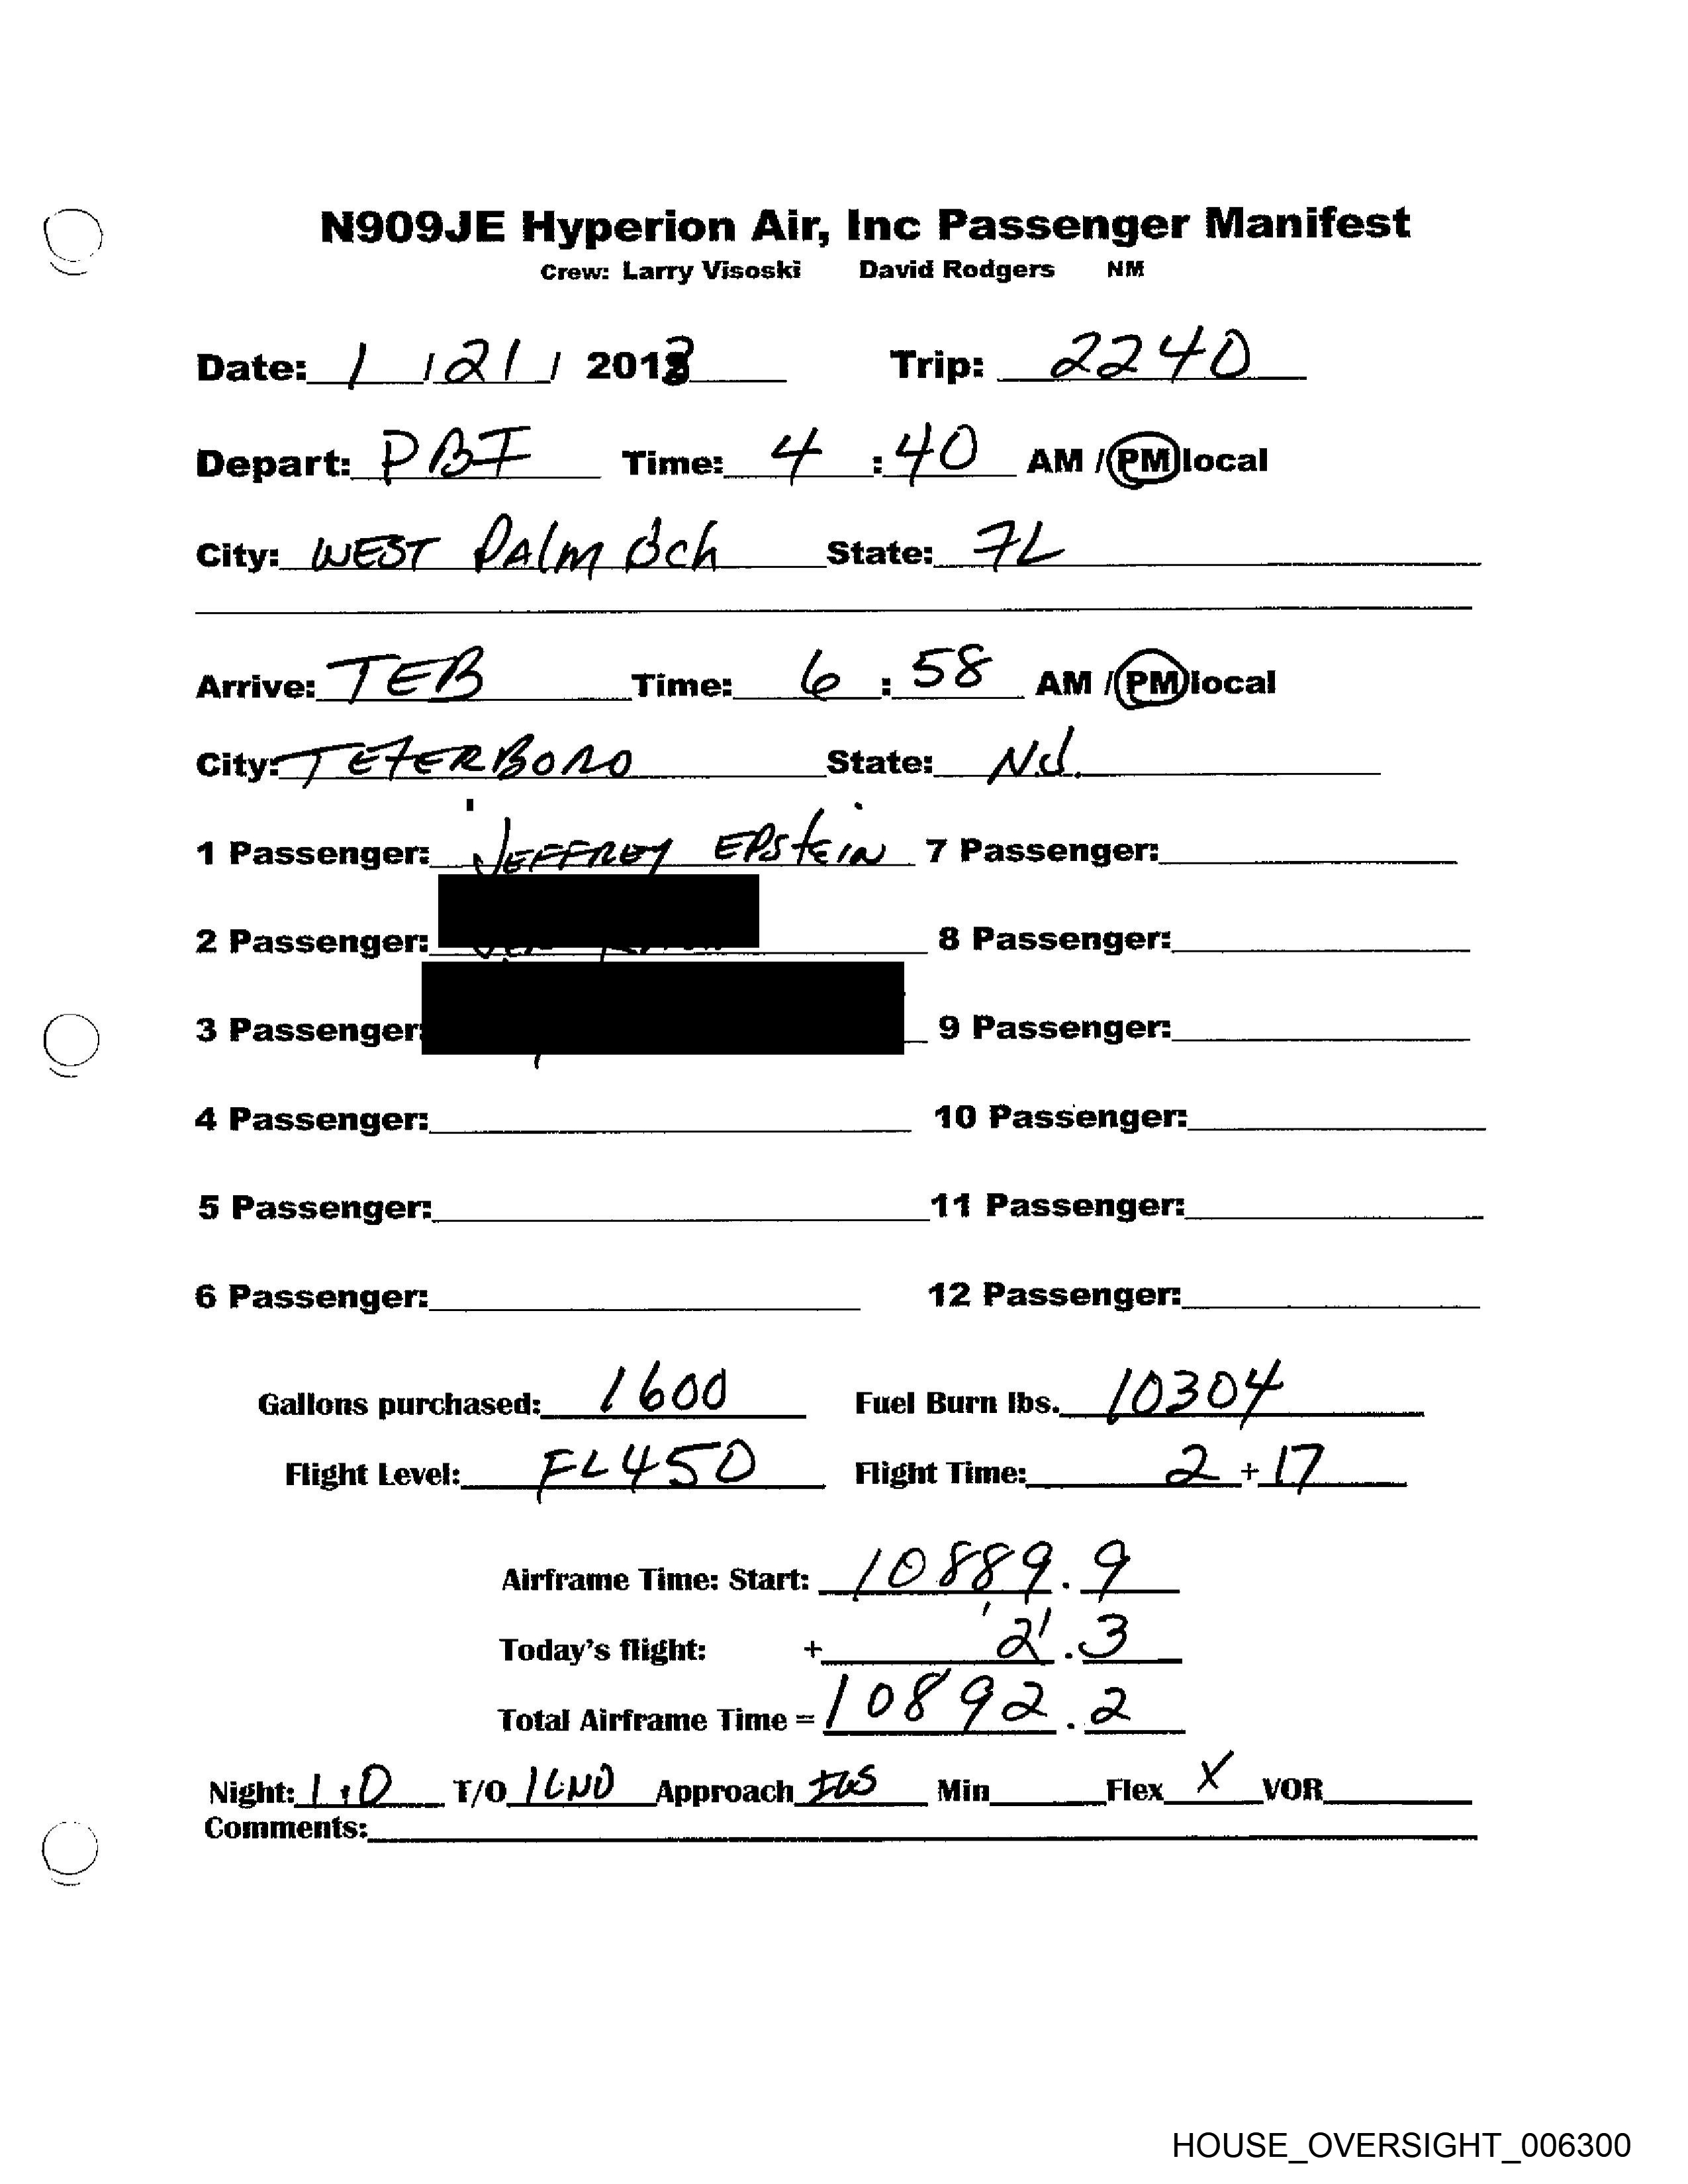 N909JE Hyperion Air, Inc Passenger Manifest
Crew: Larry Visoski David Rodgers NM
Date: 1 / 21 / 2013 Trip: 2240
Depart: PBI Time: 4 : 40 AM / PM local
City: WEST PAlm Bch State: FL
Arrive: TEB Time: 6 : 58 AM / PM local
City: TETERBORO State: N.J.
1 Passenger: JEFFREY EPStEiN 7 Passenger:
2 Passenger: 8 Passenger:
3 Passenger: 9 Passenger:
4 Passenger: 10 Passenger:
5 Passenger: 11 Passenger:
6 Passenger: 12 Passenger:
Gallons purchased: 1600 Fuel Burn lbs. 10304
Flight Level: FL450 Flight Time: 2 + 17
Airframe Time: Start: 10889.9
Today's flight: + 2.3
Total Airframe Time = 10892.2
Night: 1.0 T/O 1LND Approach ILS Min Flex X VOR
Comments:
HOUSE_OVERSIGHT_006300